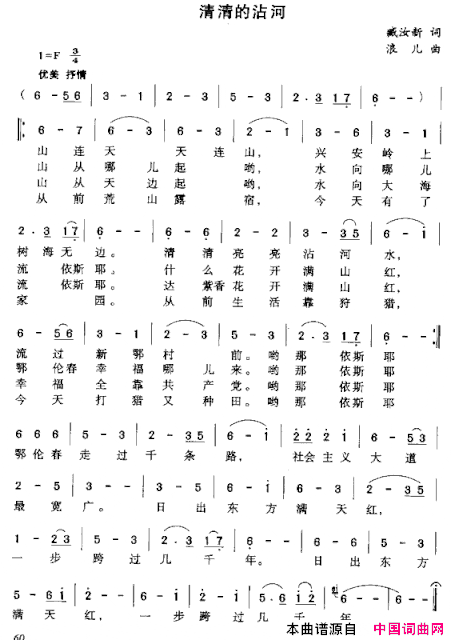 清清的沾河
臧汝新 词
1=F 3/4
浪儿 曲
优美 抒情
( 6 - 56 | 3 - 1 | 2 - 3 | 5 - 3 | 2 . 3 17 | 6 - - )
6 - 7 | 6 - 3 | 6 - 6 | 2 - 1 | 3 - - | 3 - 6 | 6 - 3
山连天 天连山, 兴安岭上
山从哪儿起 哟, 水向哪儿
山从天边起 哟, 水向大海
从前荒山露 宿, 今天有了
2 . 3 17 | 6 - - | 6 - 6 | 6 - 6 | 3 - 35 | 6 - 1
树海无边。 清清亮亮沾河水,
流 依斯耶。 什么花开满山红,
流 依斯耶。 达紫香花开满山红,
家 园。 从前生活靠狩猎,
6 - 56 | 3 - 1 | 2 - 3 | 6 - 6 | 2 . 3 17 | 6 - -
流过新鄂村 前。哟那 依斯耶
鄂伦春幸福哪儿来。哟那 依斯耶
幸福全靠共产党。哟那 依斯耶
今天打猎又种田。哟那 依斯耶
6 6 6 | 5 - 3 | 2 - 35 | 6 - 1 | 22 2 1 | 6 - 53
鄂伦春走过千条路, 社会主义大道
2 - 5 | 3 - - | 3 - 3 | 6 - 1 | 6 - 5 | 2 - 35
最宽广。 日出东方满天红,
1 - 23 | 5 - 3 | 2 - 3 | 2 . 3 17 | 6 - - | 3 - 3 | 6 - 1
一步跨过几千年。 日出东方
5 - 61 | 2 - - | 2 - 61 | 2 - 6 | 1 - 2 | 6 - - | 6 - -
满天红, 一步跨过几千年
60
本曲谱源自 中国词曲网